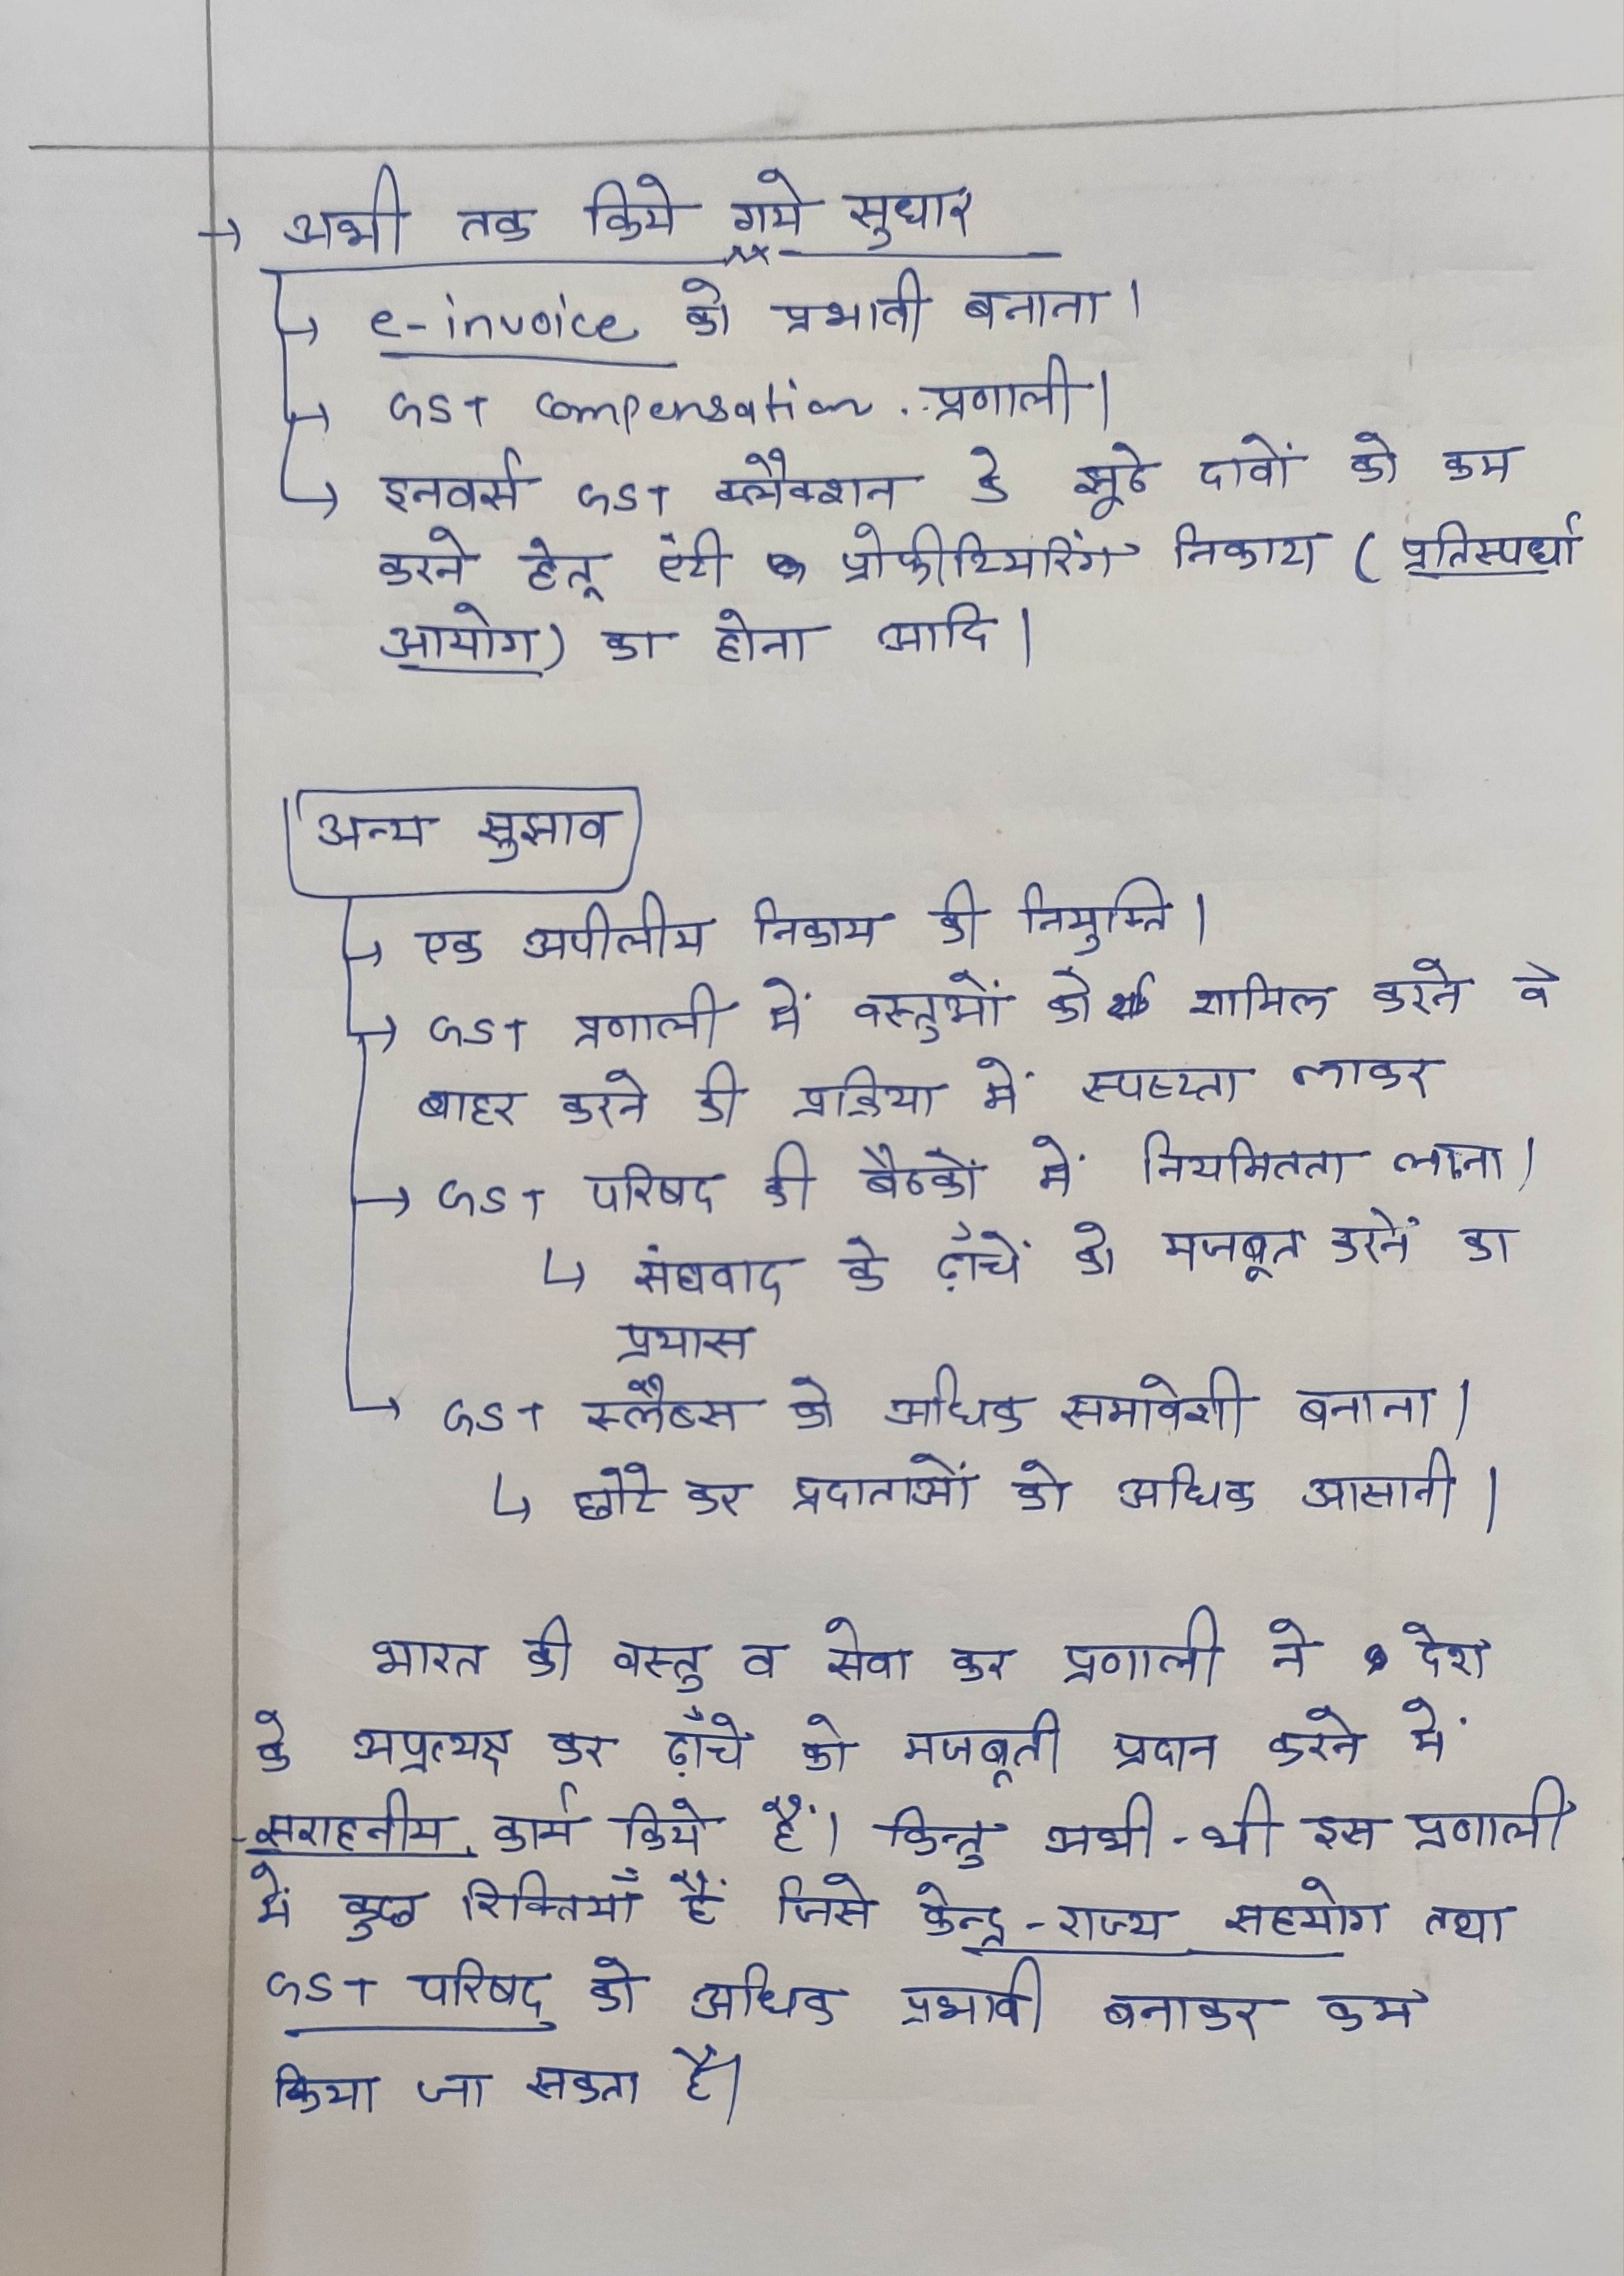 → अभी तक किये गये सुधार
↳ e-invoice को प्रभावी बनाना।
↳ GST compensation प्रणाली।
↳ इनवर्स GST क्लैक्शन के झूठे दावों को कम
करने हेतू एंटी प्रोफीटियरिंग निकाय (प्रतिस्पर्धा
आयोग) का होना आदि।
अन्य सुझाव
↳ एक अपीलीय निकाय की नियुक्ति।
→ GST प्रणाली में वस्तुओं को शामिल करने व
बाहर करने की प्रक्रिया में स्पष्टता लाकर
→ GST परिषद की बैठकों में नियमितता लाना।
↳ संघवाद के ढ़ाँचें को मजबूत करनें का
प्रयास
↳ GST स्लैब्स को अधिक समावेशी बनाना।
↳ छोटे कर प्रदाताओं को अधिक आसानी।
भारत की वस्तु व सेवा कर प्रणाली ने देश
के अप्रत्यक्ष कर ढ़ाँचे को मजबूती प्रदान करने में
सराहनीय कार्य किये हैं। किन्तु अभी-भी इस प्रणाली
में कुछ रिक्तियाँ हैं जिसे केन्द्र-राज्य सहयोग तथा
GST परिषद् को अधिक प्रभावी बनाकर कम
किया जा सकता है।